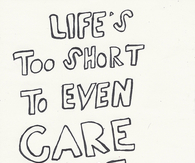 LIFE'S
TOO SHORT
TO EVEN
CARE